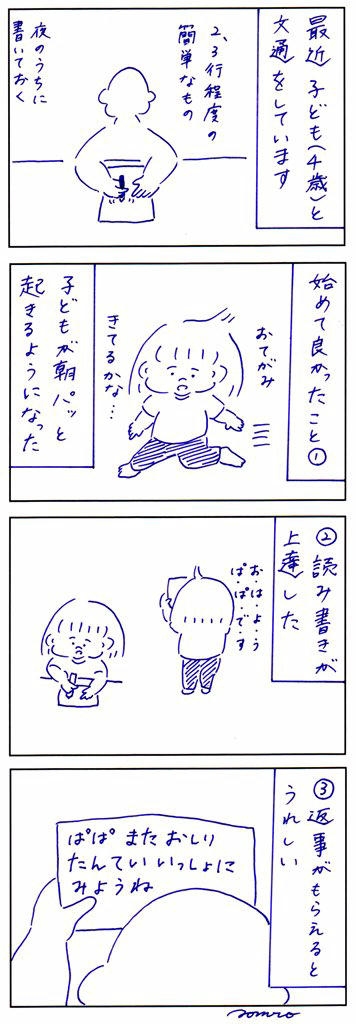 最近 子ども(4歳)と
文通をしています
2、3行程度の
簡単なもの
夜のうちに
書いておく
始めて良かったこと①
おてがみ
きてるかな…
子どもが朝パッと
起きるようになった
②読み書きが
上達した
お・は・よ・う
ぱ・ぱ・で・す
③返事がもらえると
うれしい
ぱぱ また おしり
たんてい いっしょに
みようね